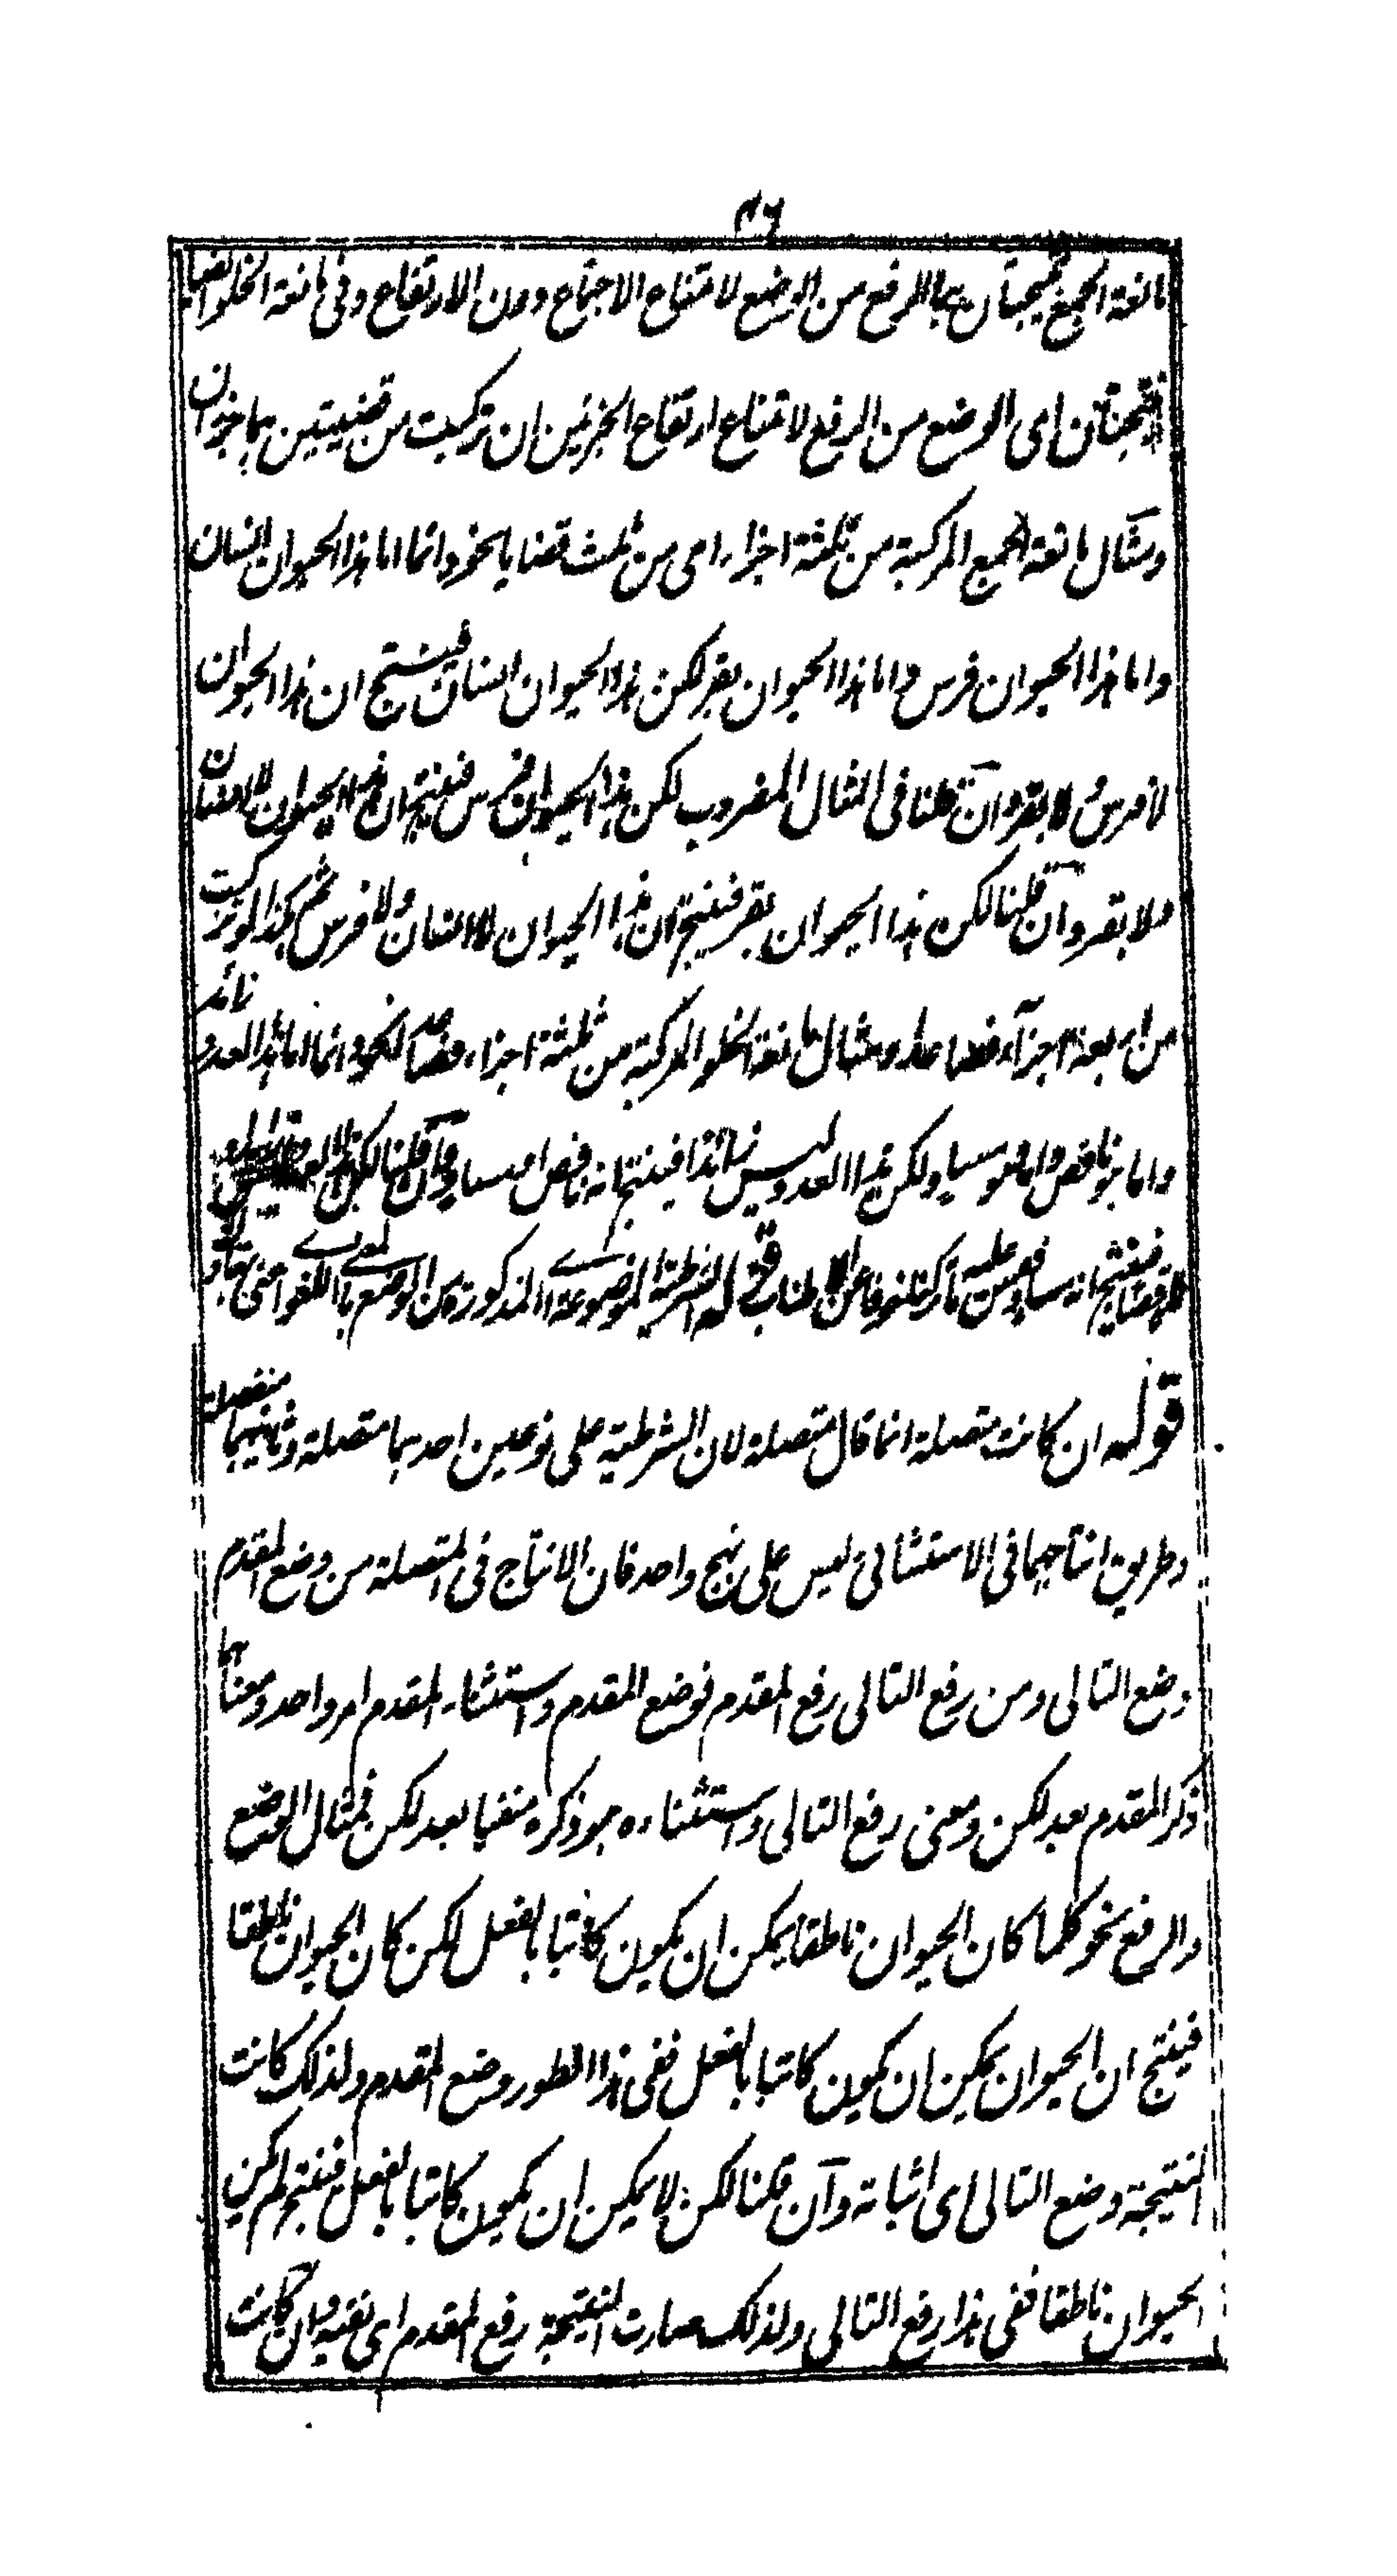 ٤٦
مانعة الجمع نتيجتان بالرفع من الوضع لامتناع الاجتماع دون الارتفاع وفى مانعة الخلو ايضا
نتيجتان اى الوضع من الرفع لامتناع ارتفاع الجزئين ان تركبت من قضيتين هما جزان
ومثال مانعة الجمع المركبة من ثلثة اجزاء اى من ثلث قضايا نحو دائما اما هذا الحيوان انسان
واما هذا الحيوان فرس واما هذا الحيوان بقر لكن هذا الحيوان انسان فينتج ان هذا الحيوان
لا فرس ولا بقر وان قلنا فى المثال المضروب لكن هذا الحيوان فرس فينتج ان هذا الحيوان لا انسان
ولا بقر وان قلنا لكن هذا الحيوان بقر فينتج ان هذا الحيوان لا انسان ولا فرس ثم كذا لو تركبت
من اربعة اجزاء فصاعدا ومثال مانعة الخلو المركبة من ثلثة اجزاء نحو دائما اما هذا العدد زائد
واما هو ناقص واما هو مساو لكن هذا العدد ليس زائدا فينتج انه ناقص او مساو وان قلنا لكن هذا العدد
فينتج انه مساو وقس عليه ما تركنا خوفا عن الاطناب قوله الشرطية الموضوعة المذكورة من الوضع
قوله ان كانت متصلة انما قال متصلة لان الشرطية على نوعين احدهما متصلة وثانيهما منفصلة
وطريق انتاجهما فى الاستثنائى ليس على نهج واحد فان الانتاج فى المتصلة من وضع المقدم
وضع التالى ومن رفع التالى رفع المقدم فوضع المقدم واستثناء المقدم امر واحد ومعناهما
ذكر المقدم بعد لكن ومعنى رفع التالى واستثناءه هو ذكره منفيا بعد لكن فمثال الوضع
والرفع نحو كلما كان الحيوان ناطقا يمكن ان يكون كاتبا بالفعل لكن كان الحيوان ناطقا
فينتج ان الحيوان يمكن ان يكون كاتبا بالفعل ففى هذا الطور وضع المقدم ولذلك كانت
النتيجة وضع التالى اى اثباته وان قلنا لكن لا يمكن ان يكون كاتبا بالفعل فينتج لم يكن
الحيوان ناطقا ففى هذا رفع التالى ولذلك صارت النتيجة رفع المقدم اى نفيه وان كانت